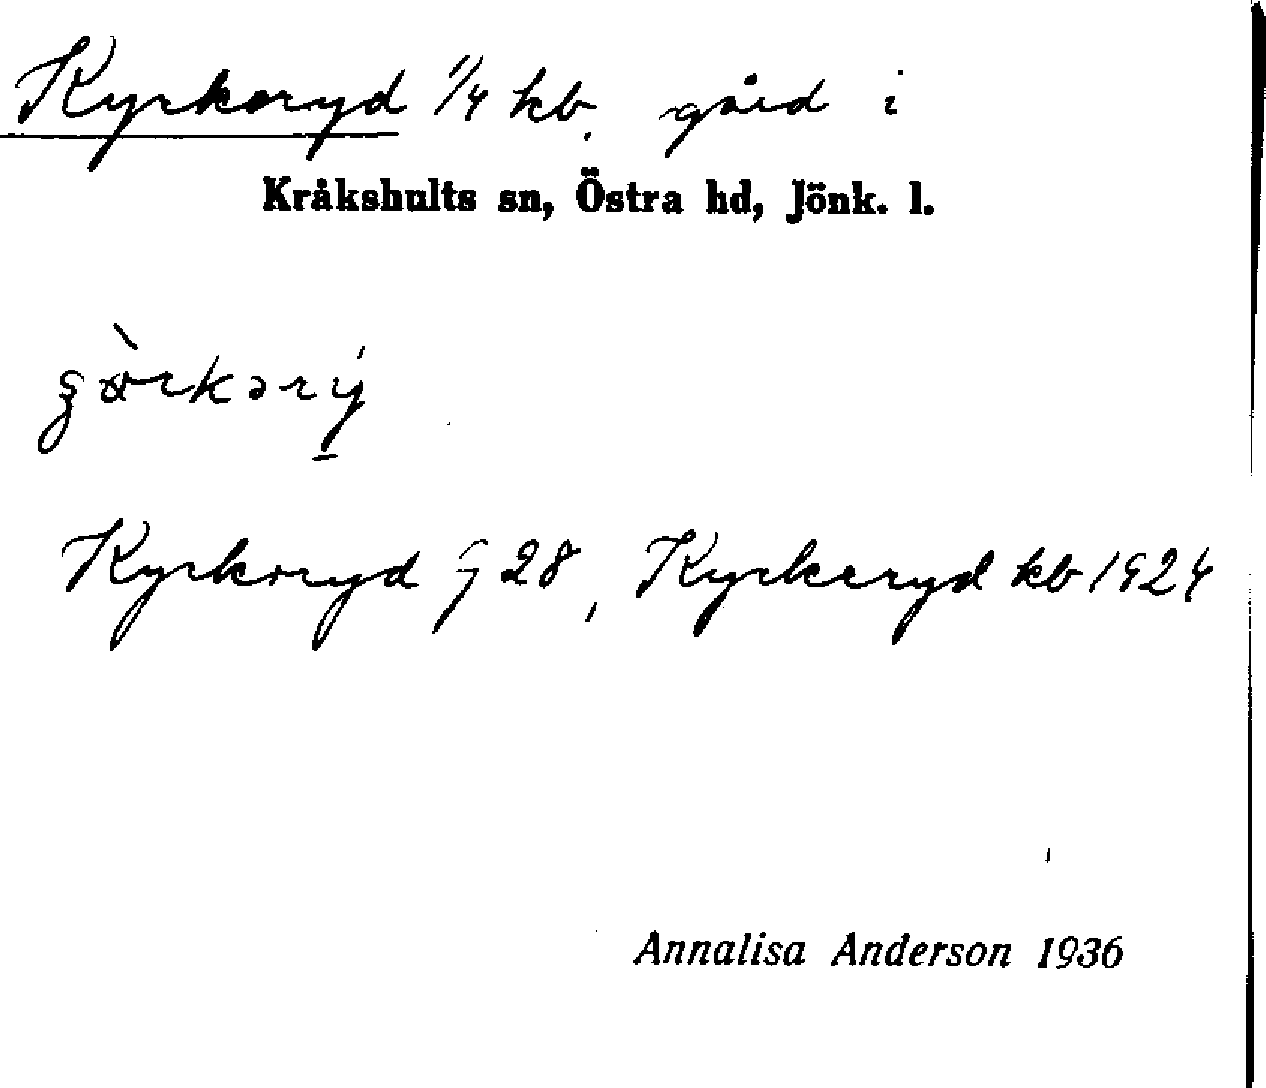 Kyrkeryd 1/4 kb. gård i
Kråkshults sn, Östra hd, Jönk. l.
Kyrkoryd G 28, Kyrkeryd kb 1924
Annalisa Anderson 1936